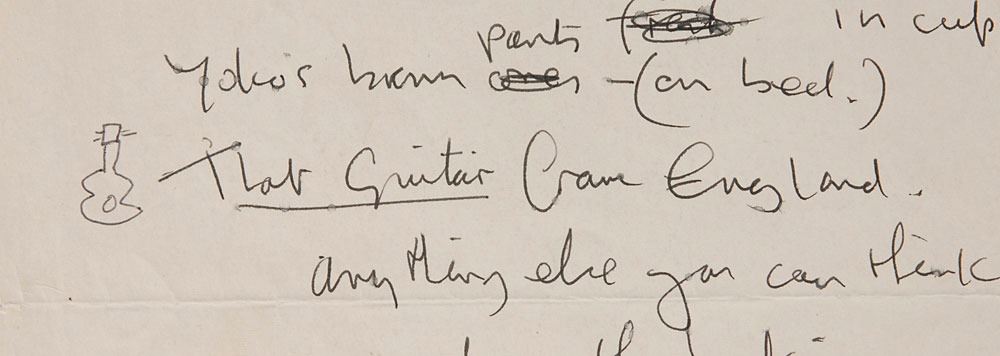 pants in cup
Yoko's brown – (on bed.)
That Guitar from England.
anything else you can think